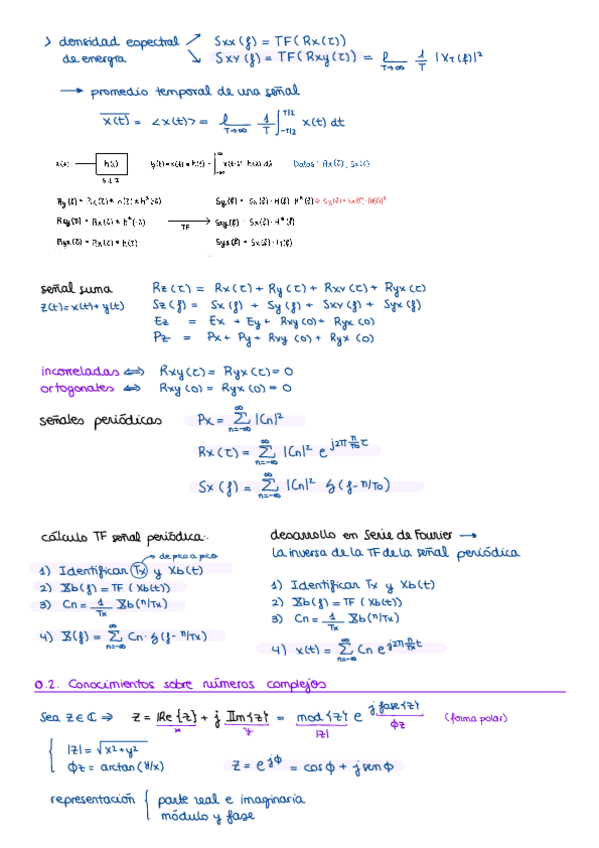 > densidad espectral ↗ Sxx(f) = TF(Rx(τ))
de energía ↘ Sxy(f) = TF(Rxy(τ)) = l_{T→∞} 1/T |X_T(f)|²
→ promedio temporal de una señal
x(t) = <x(t)> = l_{T→∞} 1/T ∫_{-T/2}^{T/2} x(t) dt
x(t) h(t) y(t) = x(t) * h(t) = Datos: Rx(τ), Sx(f)
S.L.I
TF
señal suma Rz(τ) = Rx(τ) + Ry(τ) + Rxy(τ) + Ryx(τ)
z(t) = x(t) + y(t) Sz(f) = Sx(f) + Sy(f) + Sxy(f) + Syx(f)
Ez = Ex + Ey + Rxy(0) + Ryx(0)
Pz = Px + Py + Rxy(0) + Ryx(0)
incorreladas ⟺ Rxy(τ) = Ryx(τ) = 0
ortogonales ⟺ Rxy(0) = Ryx(0) = 0
señales periódicas Px = Σ_{n=-∞}^{∞} |Cn|²
Rx(τ) = Σ_{n=-∞}^{∞} |Cn|² e^{j2π n/To τ}
Sx(f) = Σ_{n=-∞}^{∞} |Cn|² δ(f - n/To)
cálculo TF señal periódica:
→ de pico a pico
1) Identificar Tx y Xb(t)
2) Xb(f) = TF(Xb(t))
3) Cn = 1/Tx Xb(n/Tx)
4) X(f) = Σ_{n=-∞}^{∞} Cn · δ(f - n/Tx)
desarrollo en Serie de Fourier →
la inversa de la TF de la señal periódica
1) Identificar Tx y Xb(t)
2) Xb(f) = TF(Xb(t))
3) Cn = 1/Tx Xb(n/Tx)
4) x(t) = Σ_{n=-∞}^{∞} Cn e^{j2π n/Tx t}
0.2. Conocimientos sobre números complejos
Sea z ∈ ℂ ⇒ z = Re{z} + j Im{z} = mod{z} e^{j fase{z}} (forma polar)
x y |z| Φz
|z| = √x²+y²
Φz = arctan(y/x) z = e^{jΦ} = cosΦ + j senΦ
representación { parte real e imaginaria
módulo y fase